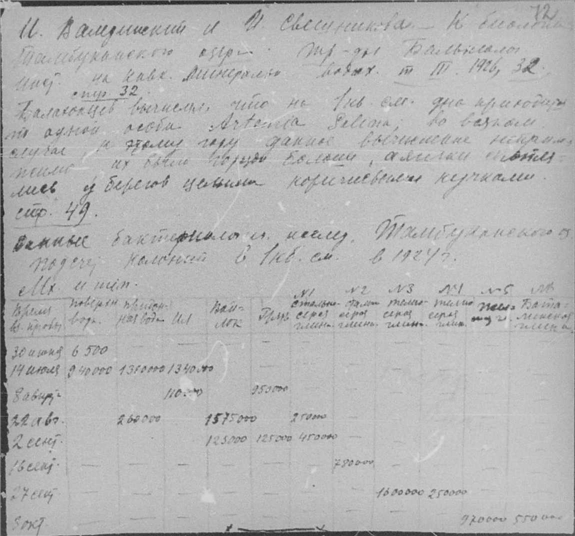 72
И. Валединский и И. Свешникова — К биологии
Тамбуканского озера. Тр-ды Бальнеолог.
инст. на Кавк. минеральн водах. т III. 1926, 32.
стр. 32.
вычислил, что на 1 кв. см. дна приходит
по одной особи Artemia Salina; во всяком
случае к этому году данное вычисление
их было гораздо больше,
лись у берегов целыми коричневыми кучками.
стр. 49.
Данные бактериолог. исслед. Тамбуканского оз
подсч колоний в 1 кб. см. в 1924 г.
Время взят. пробы | поверхн вода | придон ная вода | Ил | Най лок | Грязь | №1 серая глина | №2 серая глин. | №3 темно серая глин. | №4 темно серая глин. | №5 | №6
30 июня 6 500
14 июля 940000 1350000 1340000
8 авгус. 110000 950000
22 авг. 260000 1575000 25000
2 сент. 125000 125000 450000
16 сент. 780000
27 сент 1600000 250000
5 окт. 970000 550000